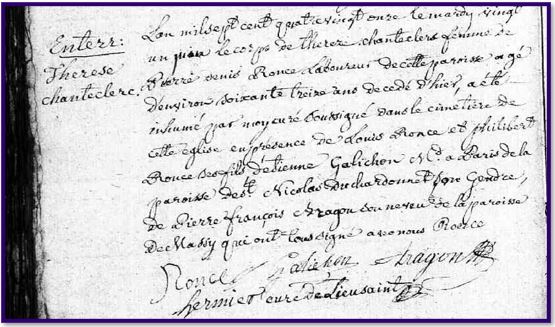 Enterr:
Therese
chanteclerc.
L'an mil sept cent quatre vingt onze le mardy vingt
un juin le corps de thereze chanteclerc femme de
Pierre denis Ronce Laboureur de cette paroisse agé
d'environ soixante treize ans decedé d'hier, a été
inhumé par moy curé soussigné dans le cimetière de
cette église en presence de Louis Ronce et philibert
Ronce ses fils d'etienne Galichon Md. a Paris de la
paroisse de St Nicolas du chardonnet son Gendre,
de Pierre françois Aragon son neveu de la paroisse
de Massy qui ont tous signé avec nous Ronce
Ronce Galichon Aragon
hermier curé de Lieusaint